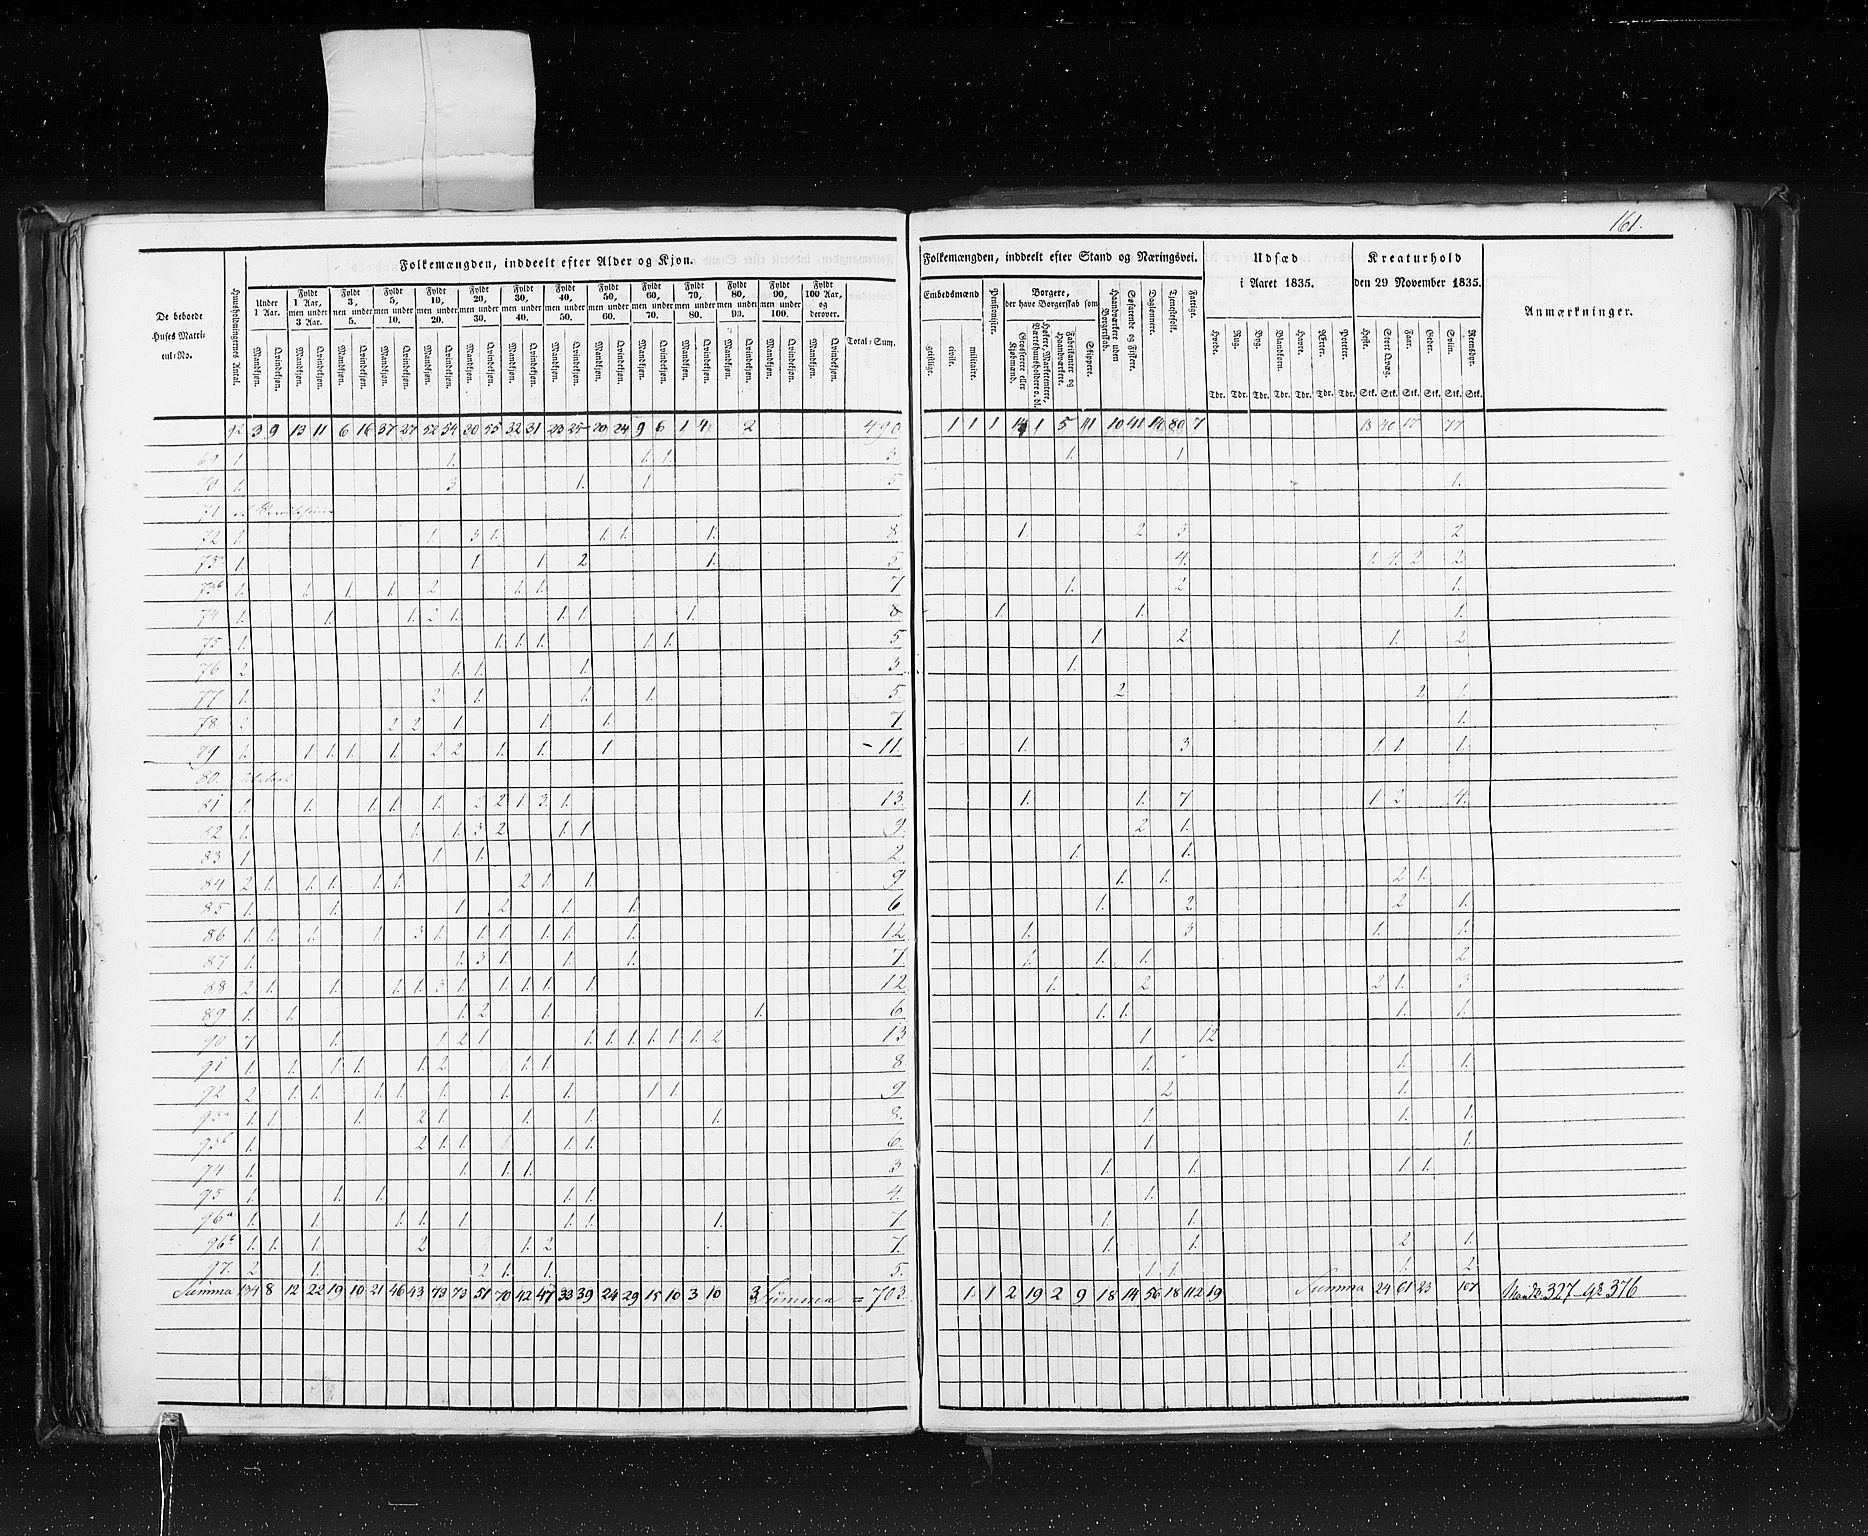 161.
Folkemængden, inddeelt efter Alder og Kjøn.
De beboede Huses Matricul-No.
Huusholdningernes Antal.
Under 1 Aar.
Fyldt 1 Aar, men under 3 Aar.
Fyldt 3, men under 5.
Fyldt 5, men under 10.
Fyldt 10, men under 20.
Fyldt 20, men under 30.
Fyldt 30, men under 40.
Fyldt 40, men under 50.
Fyldt 50, men under 60.
Fyldt 60, men under 70.
Fyldt 70, men under 80.
Fyldt 80, men under 90.
Fyldt 90, men under 100.
Fyldt 100 Aar, og derover.
Mandkjøn. Qvindekjøn.
Total-Sum.
Folkemængden, inddeelt efter Stand og Næringsvei.
Embedsmænd
geistlige. civile. militaire.
Pensionister.
Borgere, der have Borgerskab som
Grosserer eller Kjøbmænd.
Høkere, Marketentere, Værtshuusholdere o. dl.
Fabrikanter og Haandværkere.
Skippere.
Haandværkere uden Borgerskab.
Søfarende og Fiskere.
Daglønnere.
Tjenestefolk.
Fattige.
Udsæd i Aaret 1835.
Hvede. Rug. Byg. Blandkorn. Havre. Ærter. Poteter.
Tdr. Tdr. Tdr. Tdr. Tdr. Tdr. Tdr.
Kreaturhold den 29 November 1835.
Heste. Stort Qvæg. Faar. Geder. Sviin. Reensdyr.
Stk. Stk. Stk. Stk. Stk. Stk.
Anmærkninger.
92 3 9 13 11 6 16 37 27 52 54 30 55 32 31 23 25 20 24 9 6 1 4 2 490 1 1 1 14 1 5 11 10 41 80 7 17 77
69 1. 1. 1. 1. 3 1. 1
70 1. 3 1. 1 5 1.
71
72 1. 1 3 1. 1. 1. 1. 8 1. 2 3 2
73a 1. 1 1 2 1. 5 4. 1. 4. 2 2
73b 1. 1 1. 1. 2 1. 1. 7 1. 2 1.
74 1. 1. 1. 2 1. 1. 1. 1. 8 1. 1. 1.
75 1. 1. 1. 1. 1. 1. 5 1 2 1. 2
76 2 1. 1. 1. 3 1.
77 1. 2 1. 1. 1. 5 2 2 1.
78 2 2 1 1. 1. 7 1.
79 1. 1 1. 1. 1. 2 2 1. 1. 1 11. 1. 3 1 1. 1.
80
81 1. 1. 1. 1. 1. 2 1 3 1. 13 1. 1. 7 1 2 4.
82 1. 1. 1. 3 2 1. 1 9 2 1.
83 1 1. 1. 2 1. 1.
84 2 1. 1. 1. 1. 1. 2 1. 1. 9 1. 1. 2 1.
85 1. 1. 1. 2 1. 1. 6 1. 2 2 1.
86 1. 1. 1. 1. 3 1. 1. 1. 1. 1. 1. 12 1. 3 1. 1.
87 1. 1. 3 1. 1. 1. 7 1. 1. 1. 2
88 2 1. 1. 1. 1. 3 1. 1. 1. 1. 1. 12 1. 2 2 1. 3
89 1. 1. 1. 2 1. 1. 6 1. 1. 1. 1.
90 7 1. 1. 2 1. 1. 1. 1. 1. 1. 1. 2 13 1 12
91 1. 1. 1. 1. 1. 2 1. 1. 8 1. 1. 1.
92 2 1. 1. 1. 1. 1. 1. 1. 1. 1. 9 2 1.
93a 1. 1. 1. 2 1. 1. 1. 1. 8. 1. 1. 1.
93b 1. 2 1. 1. 1. 1. 6. 1. 1.
94 1. 1. 1. 1. 3 1. 1. 1. 1.
95 1. 1. 1. 1. 1. 4. 1.
96a 1. 1. 1. 1. 1. 1. 1. 1. 7 1. 1.
96b 1. 1. 1. 2 1. 2 7. 1. 1. 2 1.
97. 2 1. 2 1. 1. 5. 1 1. 1. 2
Summa 134 8 12 22 19 10 21 46 43 73 73 51 70 42 47 33 39 24 29 15 10 3 10 3 Summa = 703. 1. 1 2 19 2 9 18 14 56 18 112 19 Summa 24 61 23 107 Mandk. 327 - Qk 376